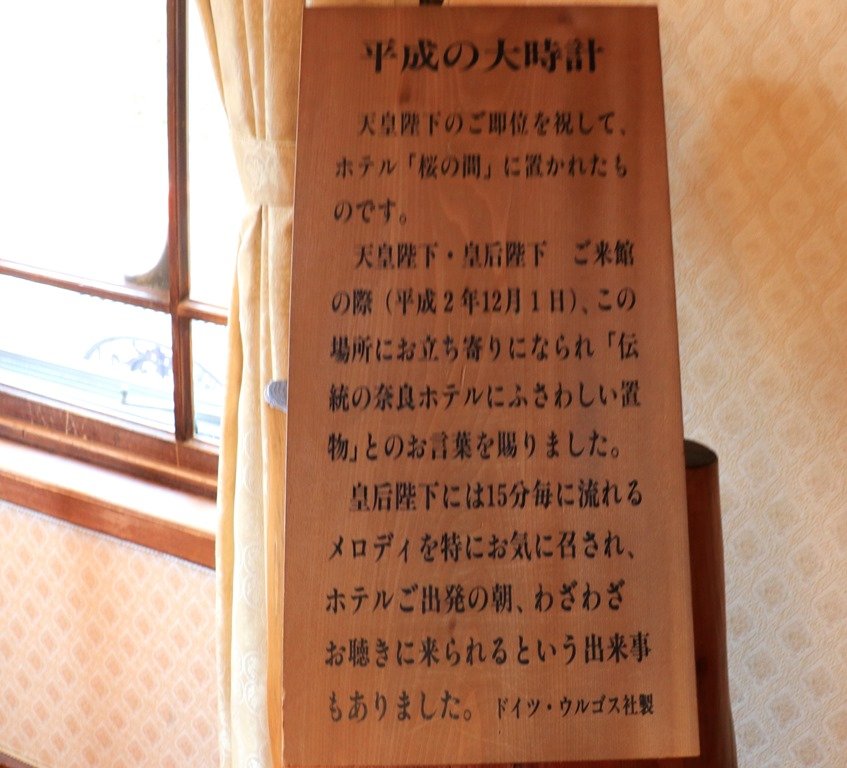 平成の大時計
天皇陛下のご即位を祝して、
ホテル「桜の間」に置かれたも
のです。
天皇陛下・皇后陛下　ご来館
の際（平成２年12月１日）、この
場所にお立ち寄りになられ「伝
統の奈良ホテルにふさわしい置
物」とのお言葉を賜りました。
皇后陛下には15分毎に流れる
メロディを特にお気に召され、
ホテルご出発の朝、わざわざ
お聴きに来られるという出来事
もありました。 ドイツ・ウルゴス社製